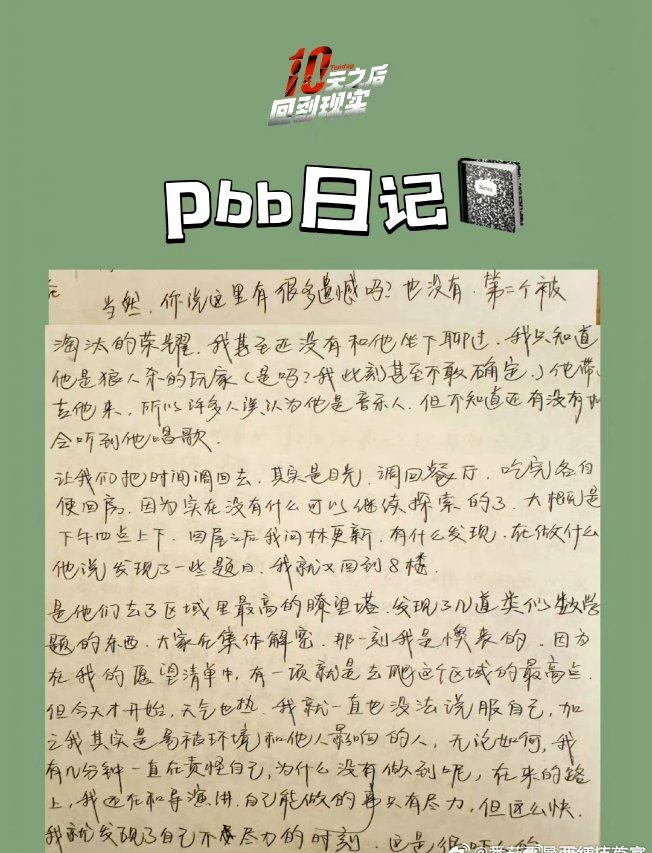 10天之后
Tenday
回到现实
pbb日记
Notes
当然，你说这里有很多遗憾吗？也没有，第二个被
淘汰的荣耀，我甚至还没有和他坐下聊过，我只知道
他是狼人杀的玩家（是吗？我此刻甚至不敢确定。）他带
吉他来，所以许多人误认为他是音乐人，但不知道还有没有
会听到他唱歌。
让我们把时间调回去，其实是目光，调回餐厅，吃完各自
便回房，因为实在没有什么可以继续探索的了，大概是
下午四点上下，回屋之后我问林更新，有什么发现，在做什么
他说发现了一些题目，我就又回到8楼。
是他们去了区域里最高的瞭望塔，发现了几道类似数学
题的东西，大家在集体解密，那一刻我是懊丧的，因为
在我的愿望清单中，有一项就是去爬这个区域的最高点，
但今天才开始，天气也热，我就一直也没法说服自己，加
之我其实是易被环境和他人影响的人，无论如何，我
有几分钟一直在责怪自己，为什么没有做到呢，在来的路
上，我还在和导演讲，自己能做的只有尽力，但这么快，
我就发现了自己不尽力的时刻，这是很